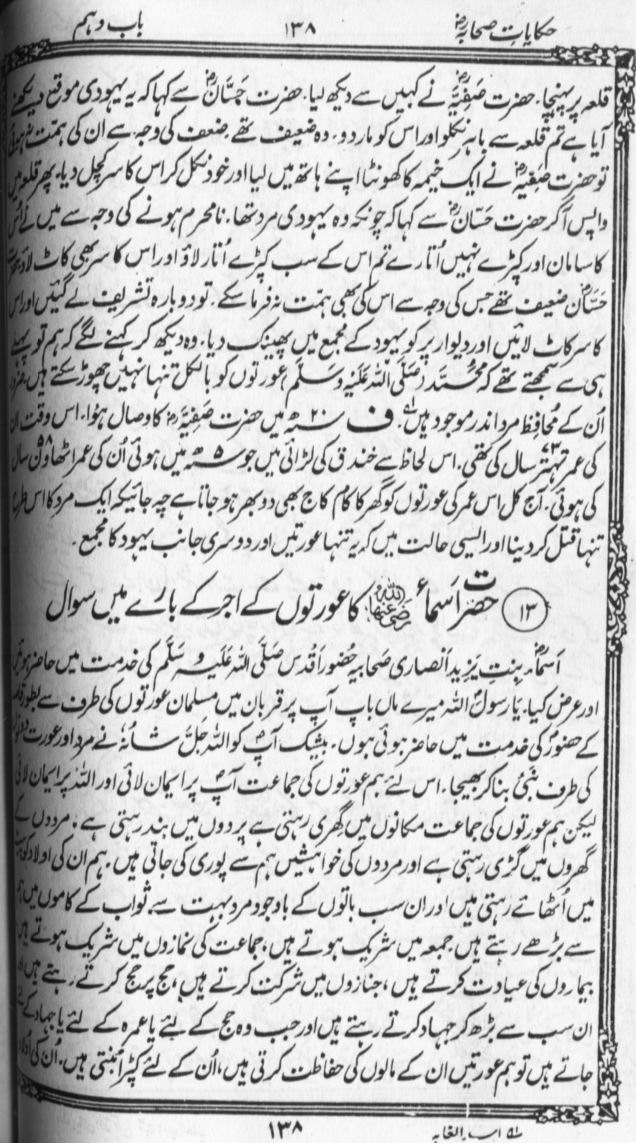 حکایاتِ صحابہؓ ۱۳۸ باب دہم
قلعہ پر پہنچا۔ حضرت صفیہؓ نے کہیں سے دیکھ لیا۔ حضرت حسّانؓ سے کہا کہ یہ یہودی موقع دیکھنے
آیا ہے تم قلعہ سے باہر نکلو اور اس کو مار دو۔ وہ ضعیف تھے ضعف کی وجہ سے ان کی ہمّت نہ ہوئی
تو حضرت صفیہؓ نے ایک خیمہ کا کھونٹا اپنے ہاتھ میں لیا اور خود نکل کر اس کا سر کچل دیا۔ پھر قلعہ میں
واپس آکر حضرت حسّانؓ سے کہا کہ چونکہ وہ یہودی مرد تھا۔ نامحرم ہونے کی وجہ سے میں نے اُس
کا سامان اور کپڑے نہیں اُتارے تم اس کے سب کپڑے اُتار لاؤ اور اس کا سر بھی کاٹ لاؤ۔ حضرت
حسّانؓ ضعیف تھے جس کی وجہ سے اس کی بھی ہمّت نہ فرما سکے۔ تو دوبارہ تشریف لے گئیں اور اس
کا سر کاٹ لائیں اور دیوار پر کو یہود کے مجمع میں پھینک دیا۔ وہ دیکھ کر کہنے لگے کہ ہم تو پہلے
ہی سے سمجھتے تھے کہ محمّد (صلّی اللہ علیہ وسلّم) عورتوں کو بالکل تنہا نہیں چھوڑ سکتے ہیں ضرور
اُن کے محافظ مرد اندر موجود ہیں۔ ف ۲۰ھ میں حضرت صفیہؓ کا وصال ہوا۔ اس وقت ان
کی عمر تہتر ۷۳ سال کی تھی۔ اس لحاظ سے خندق کی لڑائی میں جو ۵ھ میں ہوئی اُن کی عمر اٹھاون ۵۸ سال
کی ہوئی۔ آج کل اس عمر کی عورتوں کو گھر کا کام کاج بھی دوبھر ہو جاتا ہے چہ جائیکہ ایک مرد کا اس طرح
تنہا قتل کر دینا اور ایسی حالت میں کہ یہ تنہا عورتیں اور دوسری جانب یہود کا مجمع۔
۱۳ حضرت اسماءؓ کا عورتوں کے اجر کے بارے میں سوال
اسماءؓ بنت یزید انصاری صحابیہ حضور اقدس صلّی اللہ علیہ وسلّم کی خدمت میں حاضر ہوئیں
اور عرض کیا۔ یا رسول اللہ میرے ماں باپ آپ پر قربان میں مسلمان عورتوں کی طرف سے بطور قاصد
کے حضورؐ کی خدمت میں حاضر ہوئی ہوں۔ بیشک آپؐ کو اللہ جلّ شانہٗ نے مرد اور عورت دونوں
کی طرف نبی بنا کر بھیجا۔ اس لئے ہم عورتوں کی جماعت آپؐ پر ایمان لائی اور اللہ پر ایمان لائی
لیکن ہم عورتوں کی جماعت مکانوں میں گھری رہتی ہے پردوں میں بند رہتی ہے۔ مردوں کے
گھروں میں گڑی رہتی ہے اور مردوں کی خواہشیں ہم سے پوری کی جاتی ہیں۔ ہم ان کی اولاد کو پیٹ
میں اُٹھاتے رہتی ہیں اور ان سب باتوں کے باوجود مرد بہت سے ثواب کے کاموں میں ہم
سے بڑھے رہتے ہیں۔ جمعہ میں شریک ہوتے ہیں، جماعت کی نمازوں میں شریک ہوتے ہیں
بیماروں کی عیادت کرتے ہیں، جنازوں میں شرکت کرتے ہیں، حج پر حج کرتے رہتے ہیں اور
ان سب سے بڑھ کر جہاد کرتے رہتے ہیں اور جب وہ حج کے لئے یا عمرہ کے لئے یا جہاد کے لئے
جاتے ہیں تو ہم عورتیں ان کے مالوں کی حفاظت کرتی ہیں، اُن کے لئے کپڑا بُنتی ہیں۔ اُن کی اولاد
۱۳۸ لہ اسد الغابہ